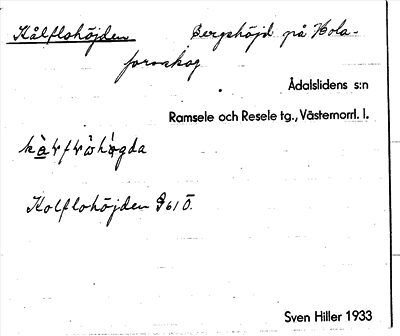 Kålflohöjden Bergshöjd på Hola-
forsskog
Ådalslidens s:n
Ramsele och Resele tg., Västernorrl. l.
Kolflohöjden G 61 Ö.
Sven Hiller 1933